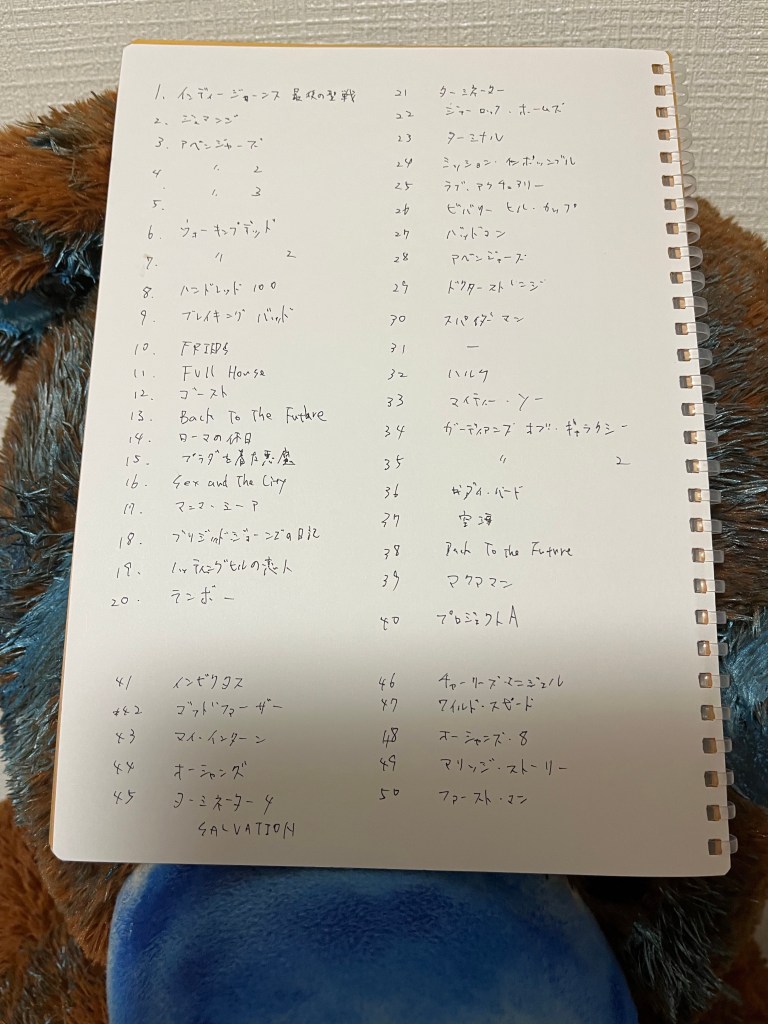 1. インディージョーンズ 最後の聖戦
2. ジュマンジ
3. アベンジャーズ
4 〃 2
5. 〃 3
6. ウォーキングデッド
7. 〃 2
8. ハンドレッド 100
9. ブレイキング バッド
10. FRIEDS
11. Full House
12. ゴースト
13. Back To The Future
14. ローマの休日
15. プラダを着た悪魔
16. Sex and The City
17. マンマ・ミーア
18. ブリジットジョーンズの日記
19. ノッティングヒルの恋人
20. ランボー
21 ターミネーター
22 シャーロック・ホームズ
23 ターミナル
24 ミッション・インポッシブル
25 ラブ・アクチュアリー
26 ビバリー ヒル・カップ
27 バットマン
28 アベンジャーズ
29 ドクターストレンジ
30 スパイダーマン
31 ー
32 ハルク
33 マイティー・ソー
34 ガーディアンズ オブ・ギャラクシー
35 〃 2
36 レディ・バード
37 空海
38 Back To the Future
39 アクアマン
40 プロジェクトA
41 インビクタス
*42 ゴッドファーザー
43 マイ・インターン
44 オーシャンズ
45 ターミネーター4
SALVATION
46 チャーリーズ・エンジェル
47 ワイルド・スピード
48 オーシャンズ・8
49 マリッジ・ストーリー
50 ファースト・マン